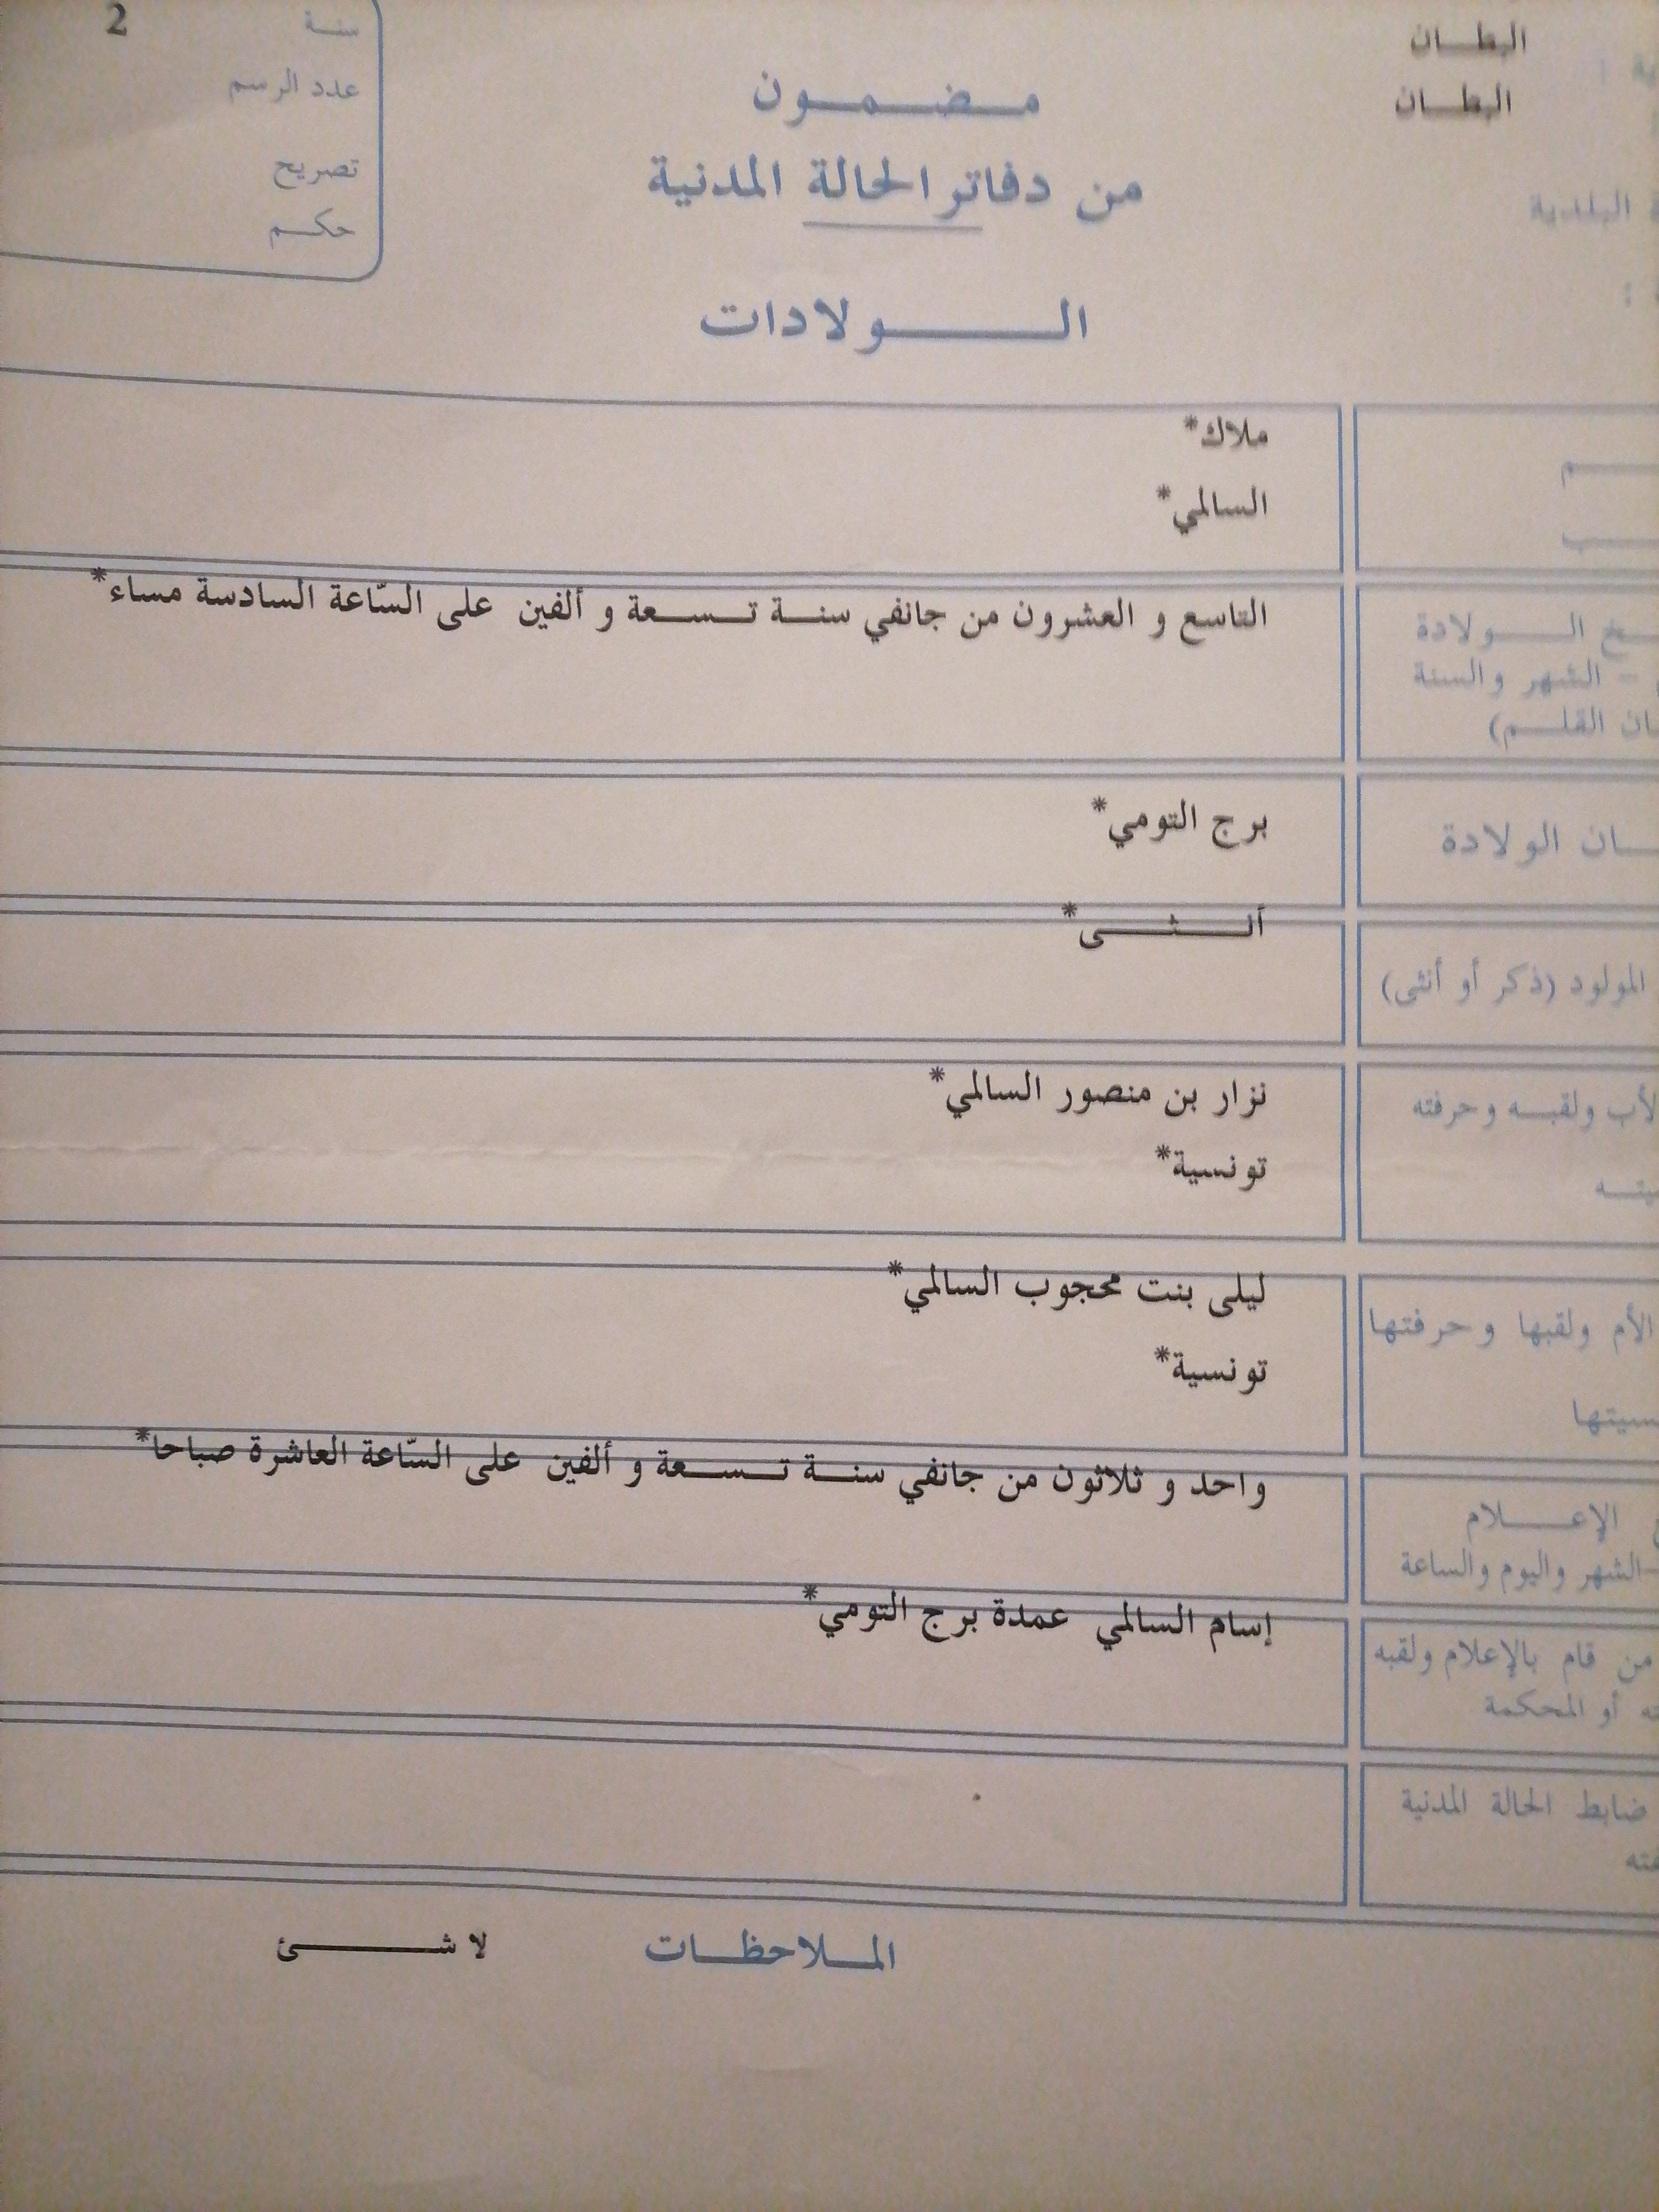 البطان
البطان
البلدية
مضمون
من دفاتر الحالة المدنية
الولادات
2
سنة
عدد الرسم
تصريح
حكم
ملاك*
السالمي*
الولادة
الشهر والسنة
التاسع و العشرون من جانفي سنة تسعة و ألفين على السّاعة السادسة مساء*
الولادة
برج التومي*
المولود (ذكر أو أنثى)
أنثى*
ولقبه وحرفته
نزار بن منصور السالمي*
تونسية*
الأم ولقبها وحرفتها
ليلى بنت محجوب السالمي*
تونسية*
الإعلام
الشهر واليوم والساعة
واحد و ثلاثون من جانفي سنة تسعة و ألفين على السّاعة العاشرة صباحا*
من قام بالإعلام ولقبه
أو المحكمة
إسام السالمي عمدة برج التومي*
ضابط الحالة المدنية
الملاحظات لا شئ